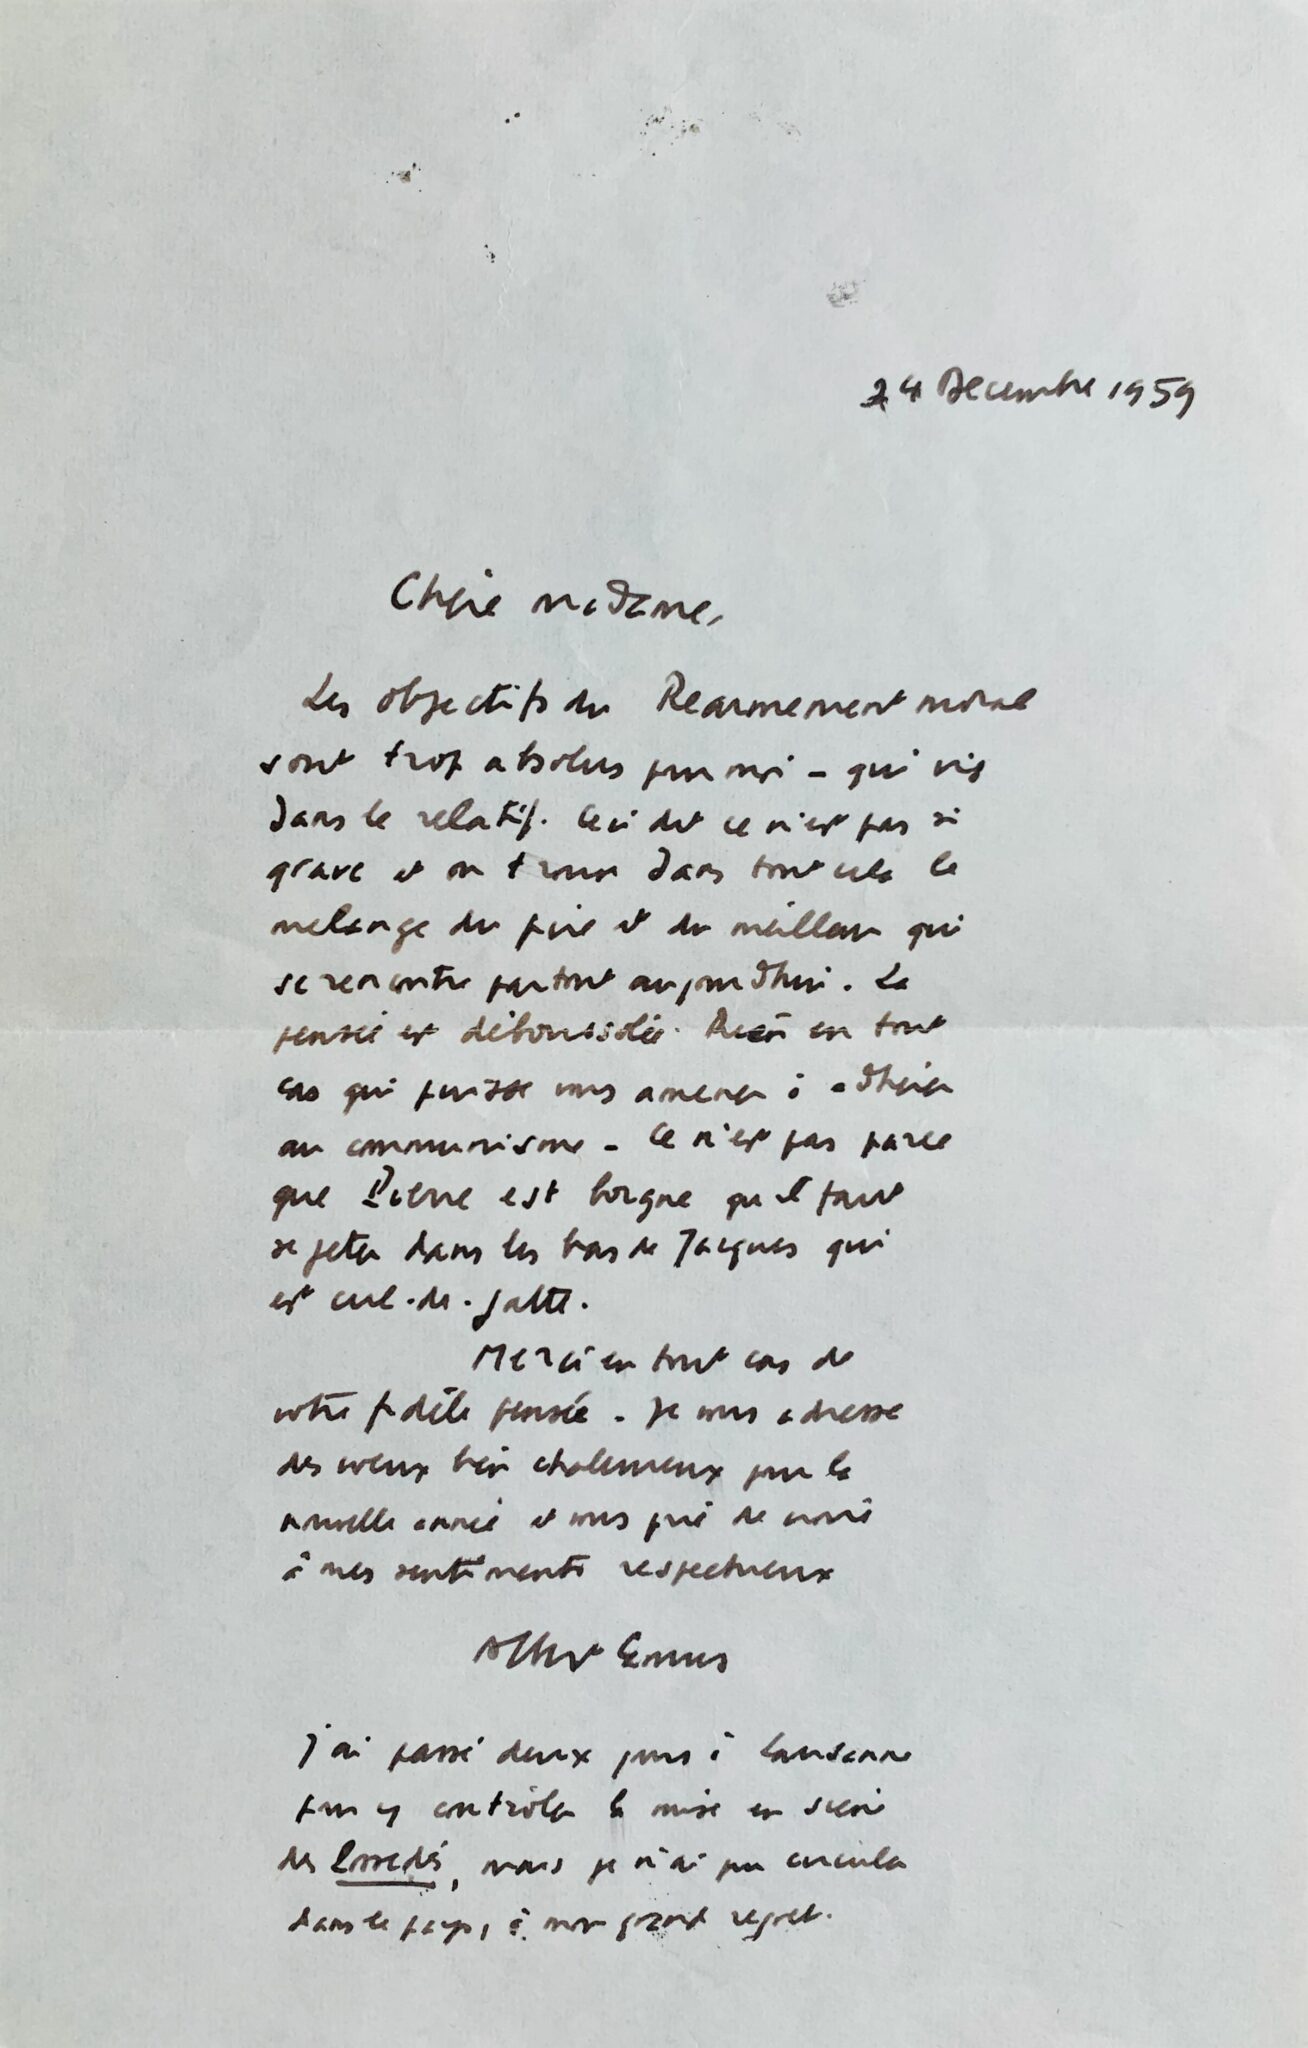 24 Decembre 1959
Chère madame,
Les objectifs du Réarmement moral
sont trop absolus pour moi - qui vis
dans le relatif. Ceci dit ce n'est pas si
grave et on trouve dans tout cela le
mélange du pire et du meilleur qui
se rencontre partout aujourd'hui. La
pensée est déboussolée. Rien en tout
cas qui puisse vous amener à adhérer
au communisme - Ce n'est pas parce
que Pierre est borgne qu'il faut
se jeter dans les bras de Jacques qui
est cul-de-jatte.
Merci en tout cas de
votre fidèle pensée. Je vous adresse
des voeux bien chaleureux pour la
nouvelle année et vous prie de croire
à mes sentiments respectueux
Albert Camus
J'ai passé deux jours à Lausanne
pour y contrôler la mise en scène
des Possédés, mais je n'ai pu circuler
dans le pays, à mon grand regret.